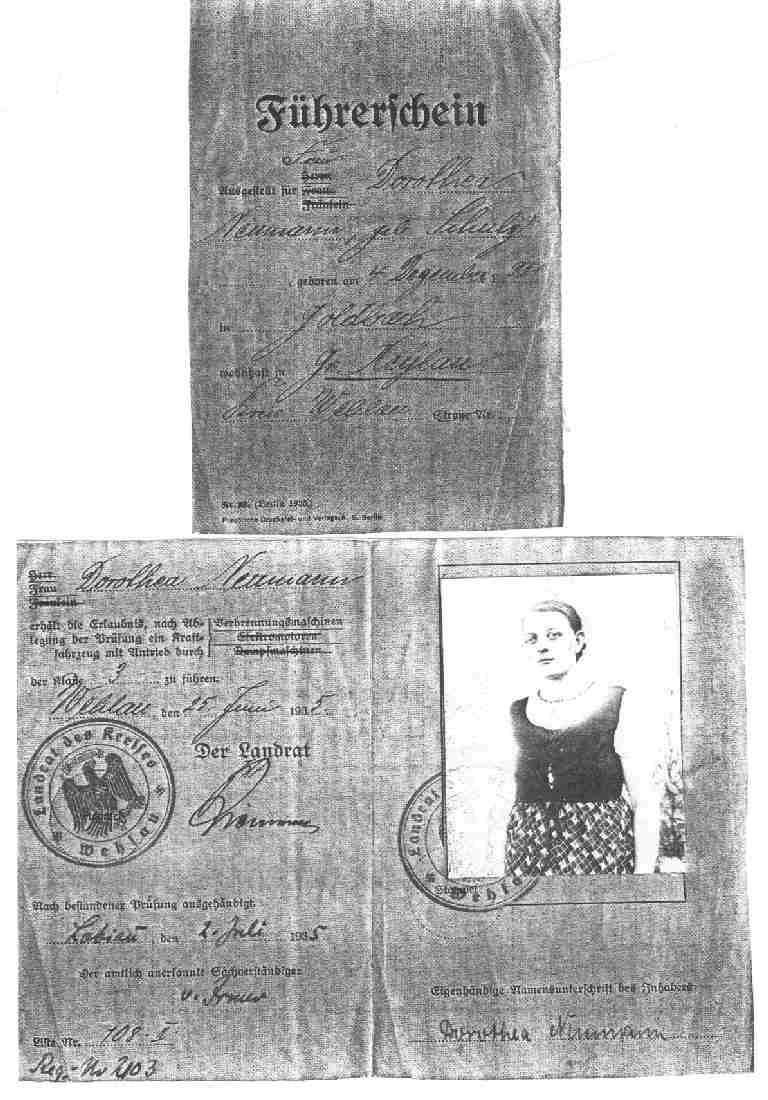 Führerschein
Frau
Herrn
Ausgestellt für Frau Dorothea
Fräulein
Neumann geb. Schulz
, geboren am 4 Dezember
in
wohnhaft in Gr.
Wehlau Straße Nr.
Preußische Druckerei- und Verlags-A. G. Berlin
Herr
Frau Dorothea Neumann
Fräulein
erhält die Erlaubnis, nach Ab- Verbrennungsmaschinen
legung der Prüfung ein Kraft- Elektromotoren
fahrzeug mit Antrieb durch Dampfmaschinen
der Klasse 3 zu führen.
Wehlau den 25. Juni 1935.
Der Landrat
Landrat des Kreises Wehlau
Nach bestandener Prüfung ausgehändigt.
Labiau, den 2. Juli 1935
Der amtlich anerkannte Sachverständige:
Liste Nr. 108-II
Reg.-Nr 2103
Landrat
Wehlau
Stempel
Eigenhändige Namensunterschrift des Inhabers:
Dorothea Neumann